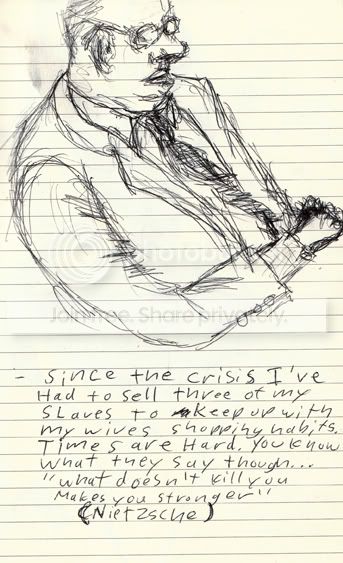 photobucket
Join free. Share privately.
- Since the crisis I've
Had to sell three of my
Slaves to keep up with
my wives shopping habits.
Times are Hard. You know
what they say though...
"what doesn't kill you
Makes you stronger"
(Nietzsche)